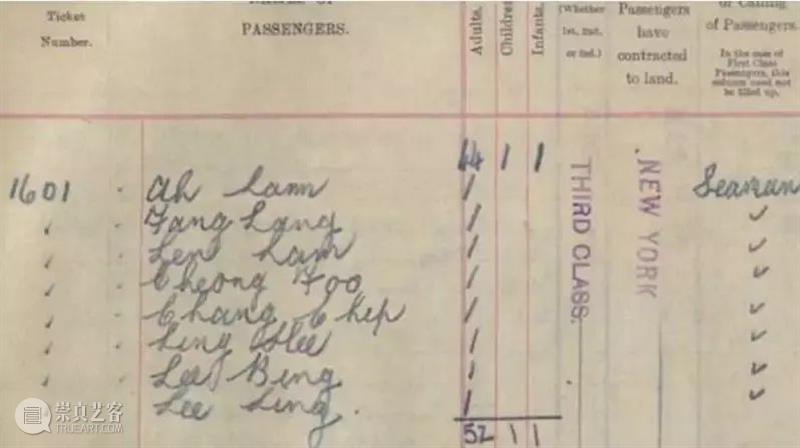 Ticket Number.
PASSENGERS.
Adults.
Children
Infants.
(Whether 1st, 2nd, or 3rd.)
Passengers have contracted to land.
or Calling of Passengers.
In the case of First Class Passengers, this column need not be filled up.
44 1 1
THIRD CLASS.
NEW YORK
1601 . Ah Lam / Seaman
✓ . Fang Lang / ✓
✓ . Len Lam / ✓
✓ . Cheong Foo / ✓
✓ . Chang Chip / ✓
✓ . Ling Hee / ✓
✓ . Lee Bing / ✓
✓ . Lee Ling . /
52 1 1
崇真艺客
WWW.TRUEART.COM